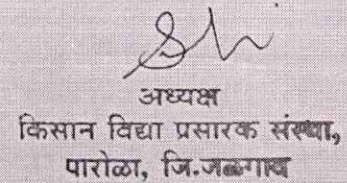 अध्यक्ष
किसान विद्या प्रसारक संस्था,
पारोळा, जि.जळगाव